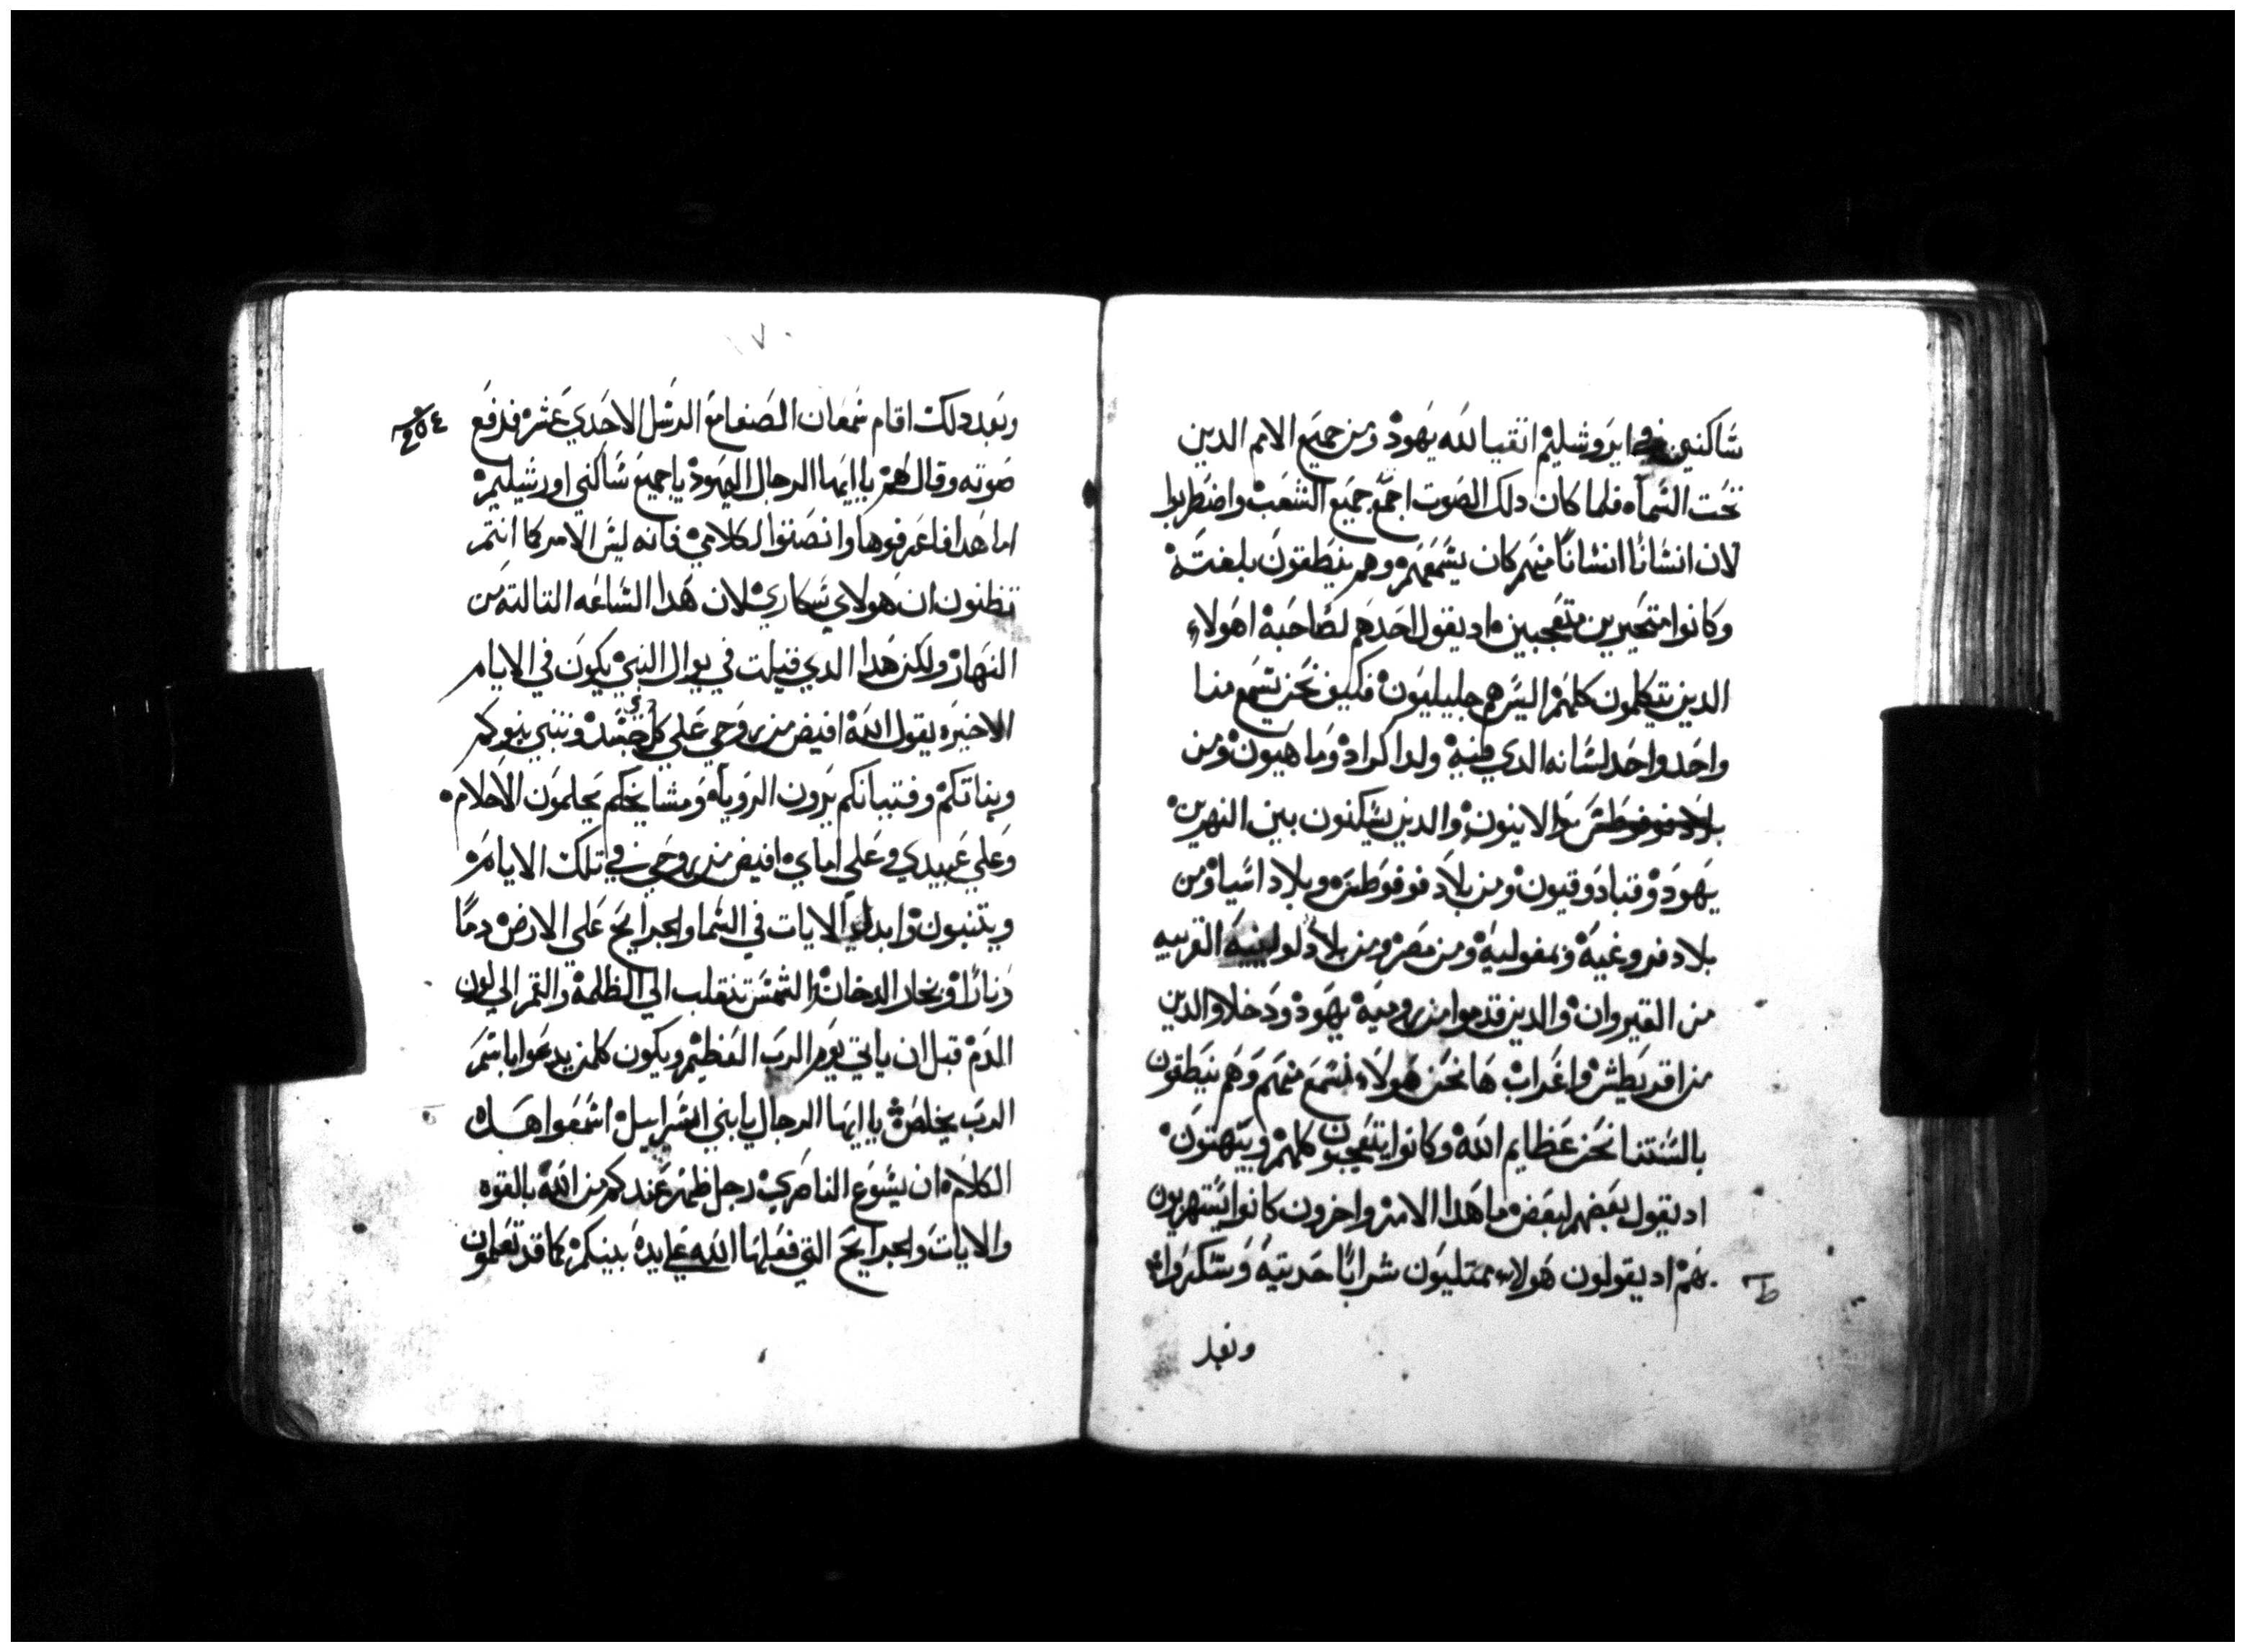 ساكنين في ايروشليم اتقيا لله يهود ومن جميع الامم الدين
تحت السماه فلما كان دلك الصوت اجتمع جميع الشعب واضطربوا
لان انسانا انسانا منهم كان يسمعهم وهم ينطقون بلغته
وكانوا متحيرين متعجبين اد يقول احدهم لصاحبه اهولاء
الدين يتكلمون كلهم اليس هم جليليون فكيف نحن نسمع منا
واحد واحد لسانه الدي فيه ولدا كراد وماهيون ومن
والالانيون والدين يسكنون بين النهرين
يهود وقبادوقيون ومن بلاد فوفوطس وبلاد اسيا ومن
بلاد فروغيه وبمفوليه ومن مصر ومن بلاد لولينيه القريبه
من القيروان والدين قدموا من روميه يهود ودخلا والدين
من اقريطش واعراب ها نحن هولاء نسمع منهم وهم ينطقون
بالسنتنا نحن عظايم الله وكانوا يتعجبون كلهم ويبهتون
اد يقول بعضهم لبعض ما هدا الامر واخرون كانوا يستهزيون
بهم اد يقولون هولاء ممتليون شرابا حديثيه وسكروا
وبعد
١٧٠
وبعد دلك اقام شمعان الصفا مع الرسل الاحدي عشر فرفع
صوته وقال لهم يا ايها الرجال اليهود يا جميع ساكني اورشليم
اما هدا فاعرفوها وانصتوا لكلامي فانه ليس الامر كما انتم
تظنون ان هولاي سكاري لان هدا الساعه التالته من
النهار ولكن هدا الدي قيلت في يوال النبي يكون في الايام
الاخيره يقول الله افيض من روحي علي كل جسد وتنبي بنوكم
وبناتكم وفتيانكم يرون الروياه ومشايخكم يحلمون الاحلام
وعلي عبيدي وعلي اماي افيض من روحي في تلك الايام
ويتنبون وابدل الايات في السما والجرايح علي الارض دما
ونارا وبخار الدخان والشمس تنقلب الي الظلمة والقمر الي لون
الدم قبل ان ياتي يوم الرب العظيم ويكون كلمن يدعوا باسم
الرب يخلص يا ايها الرجال يا بني اسراييل اسمعوا هدا
الكلام ان يسوع الناصري رجل ظهر عندكم من الله بالقوه
والايات والجرايح التي فعلها الله علي يده بينكم كما قد تعلمون